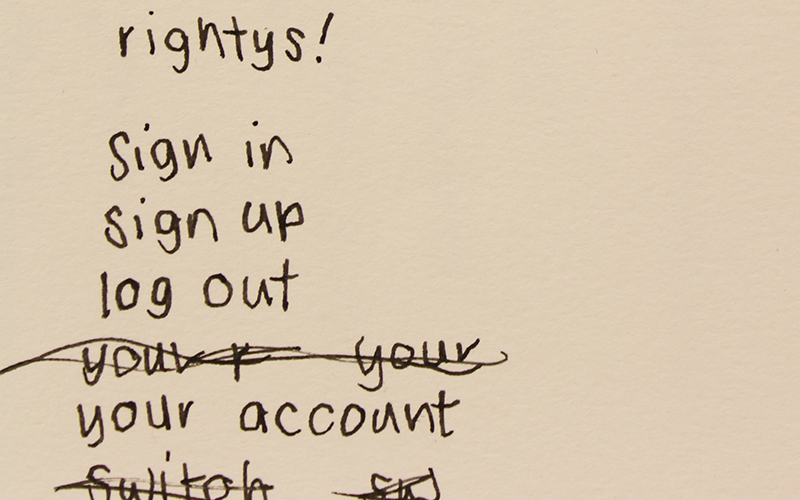 rightys!
sign in
sign up
log out
your r your
your account
switch sw